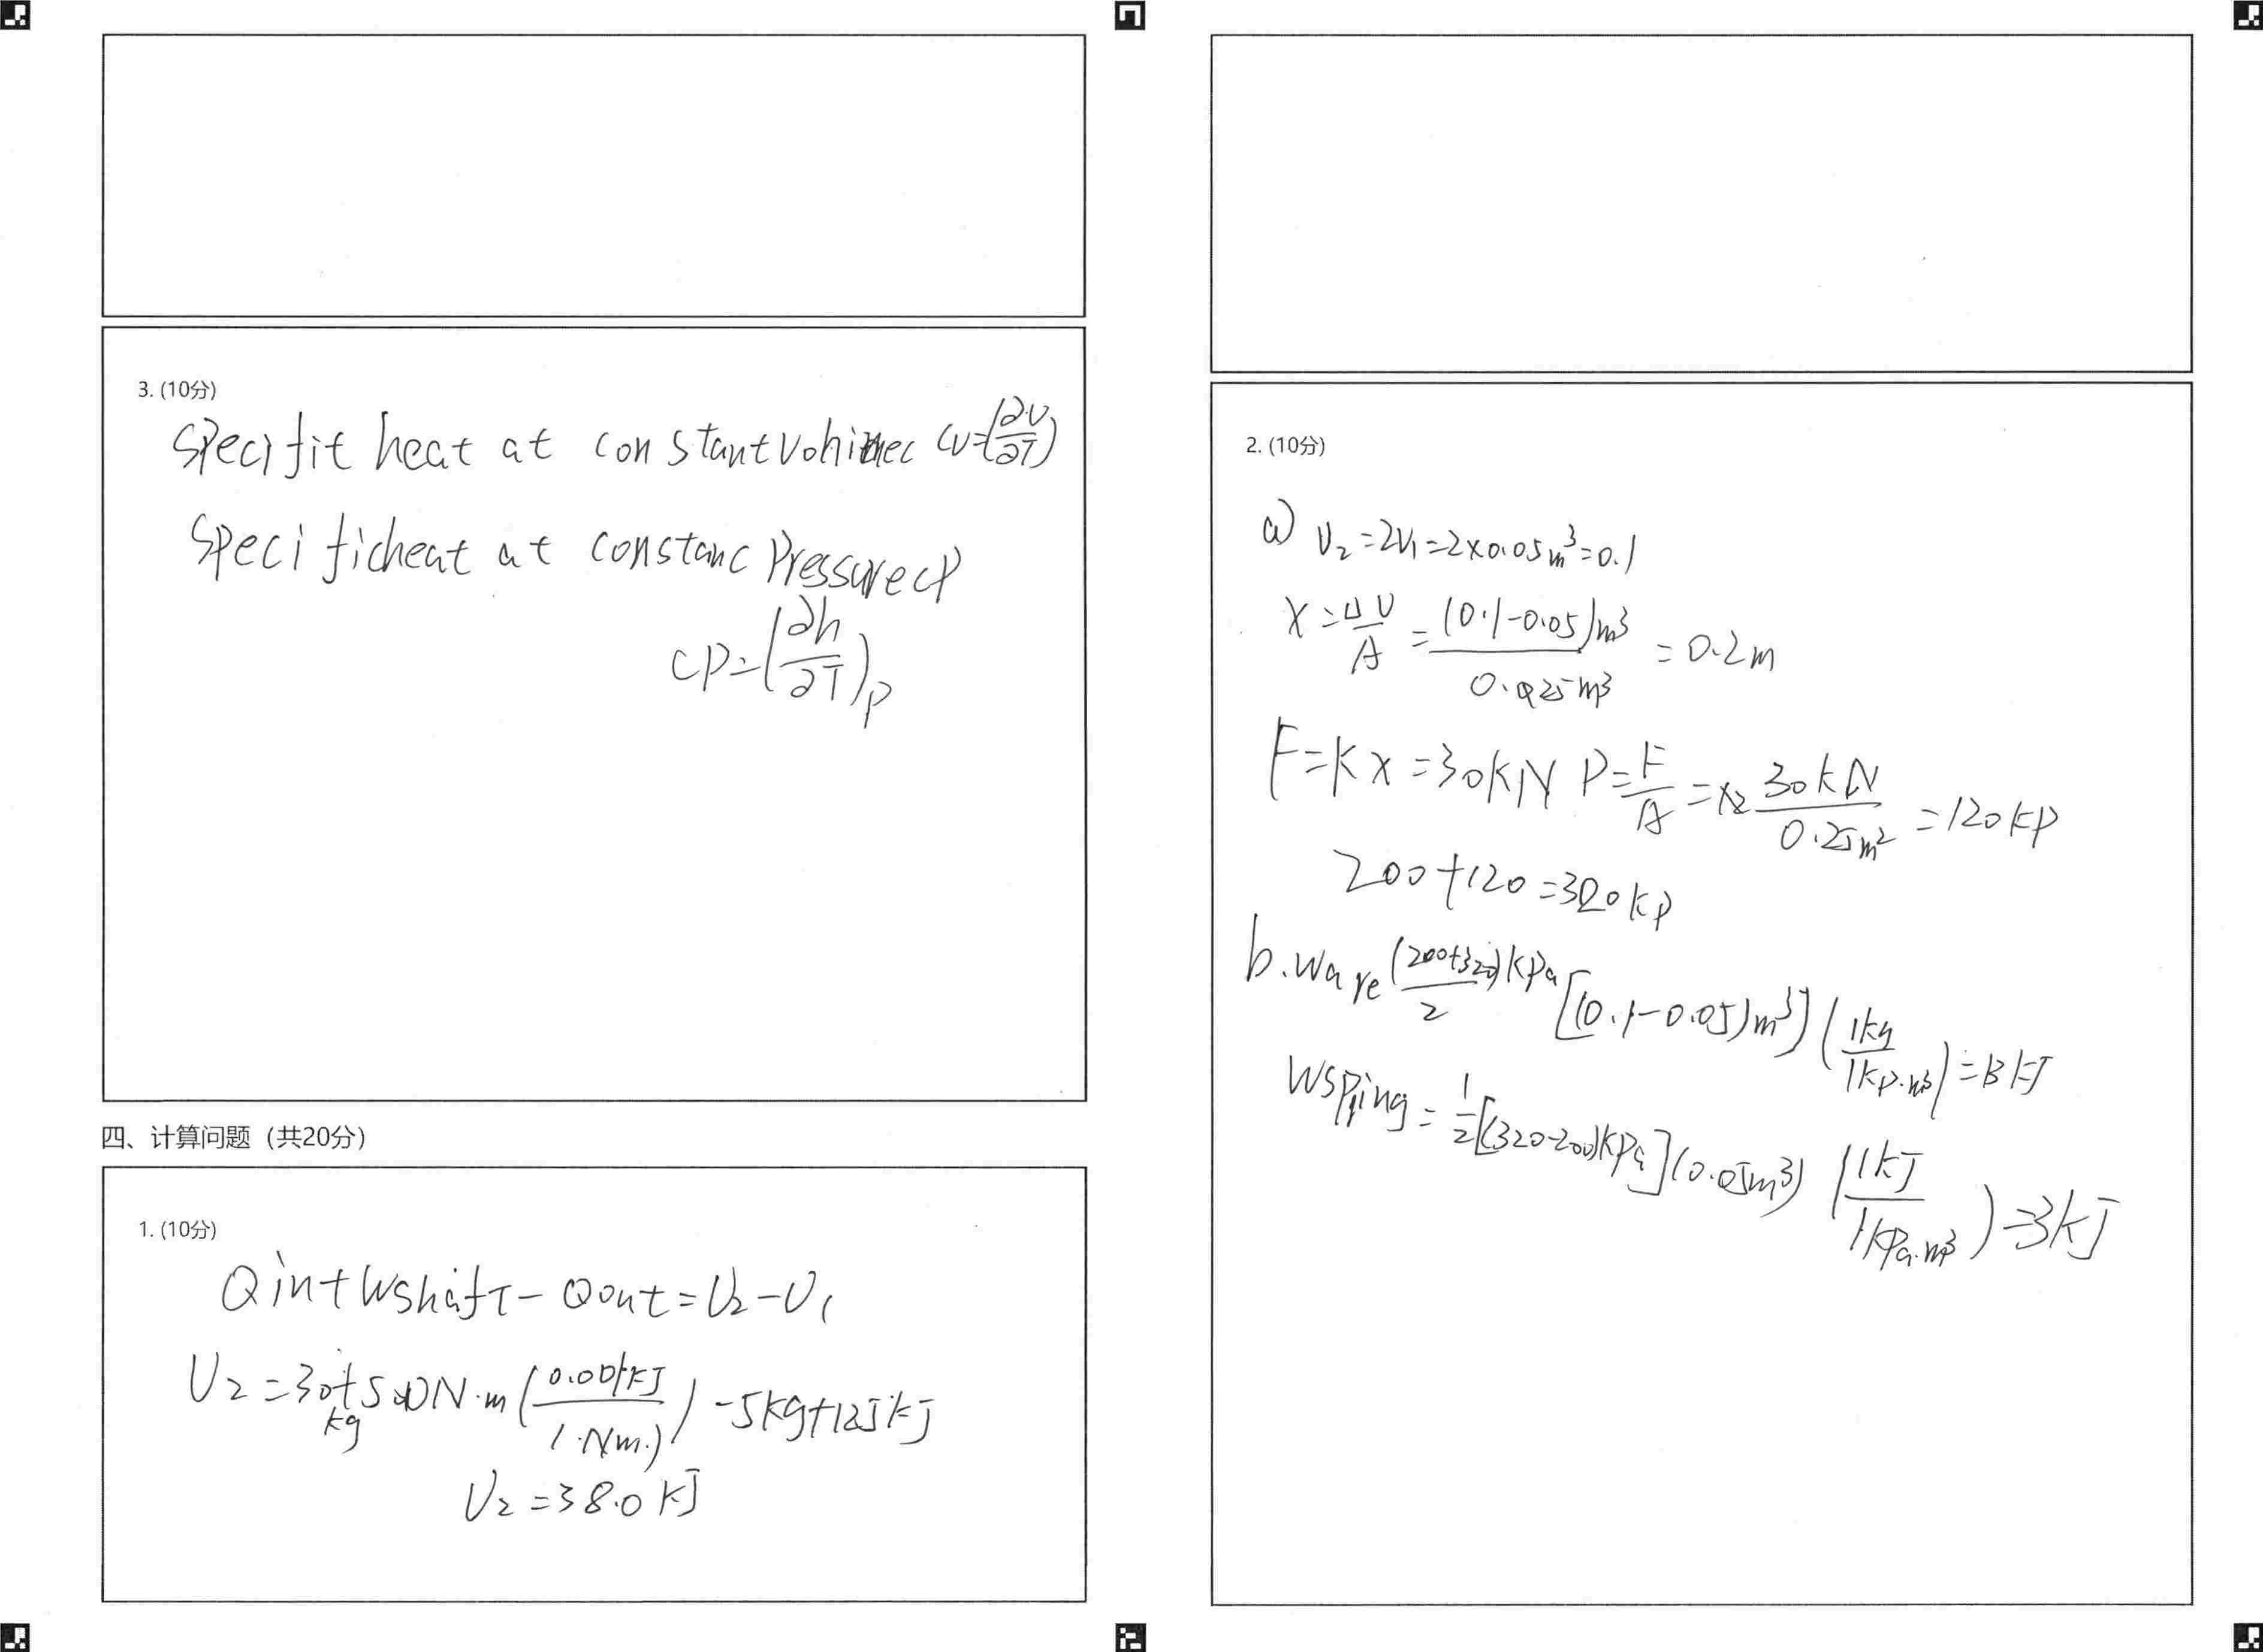 3. (10分)
specifit heat at constant vohimec cv=(∂U/∂T)
specificheat at constanc Pressurecp
cp=(∂h/∂T)p
四、计算问题（共20分）
1. (10分)
Qin+Wshaft-Qout=U2-U1
U2=30kg+500N·m(0.001kJ/1·Nm.)-5kg+125kJ
U2=38.0kJ
2. (10分)
a) V2=2V1=2×0.05m³=0.1
X=ΔU/A=(0.1-0.05)m³/0.025m³=0.2m
F=Kx=30KN P=F/A=30kN/0.25m²=120kp
200+120=320kp
b.Ware(200+320)kpa/2[(0.1-0.05)m³](1kg/1kp.m³)=13kJ
Wspping=1/2[(320-200)kpa](0.05m³)(1kJ/1kpa.m³)=3kJ